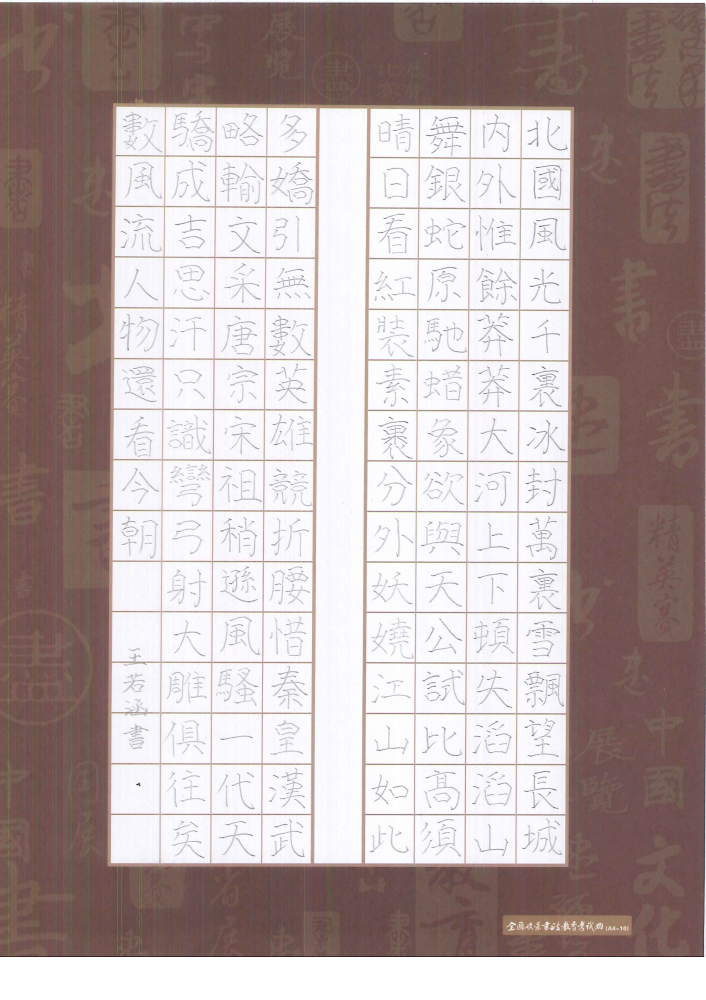 北國風光千裏冰封萬裏雪飄望長城
內外惟餘莽莽大河上下頓失滔滔山
舞銀蛇原馳蜡象欲與天公試比高須
晴日看紅裝素裹分外妖嬈江山如此
多嬌引無數英雄競折腰惜秦皇漢武
略輸文采唐宗宋祖稍遜風騷一代天
驕成吉思汗只識彎弓射大雕俱往矣
數風流人物還看今朝
王若涵書
(A4-16)